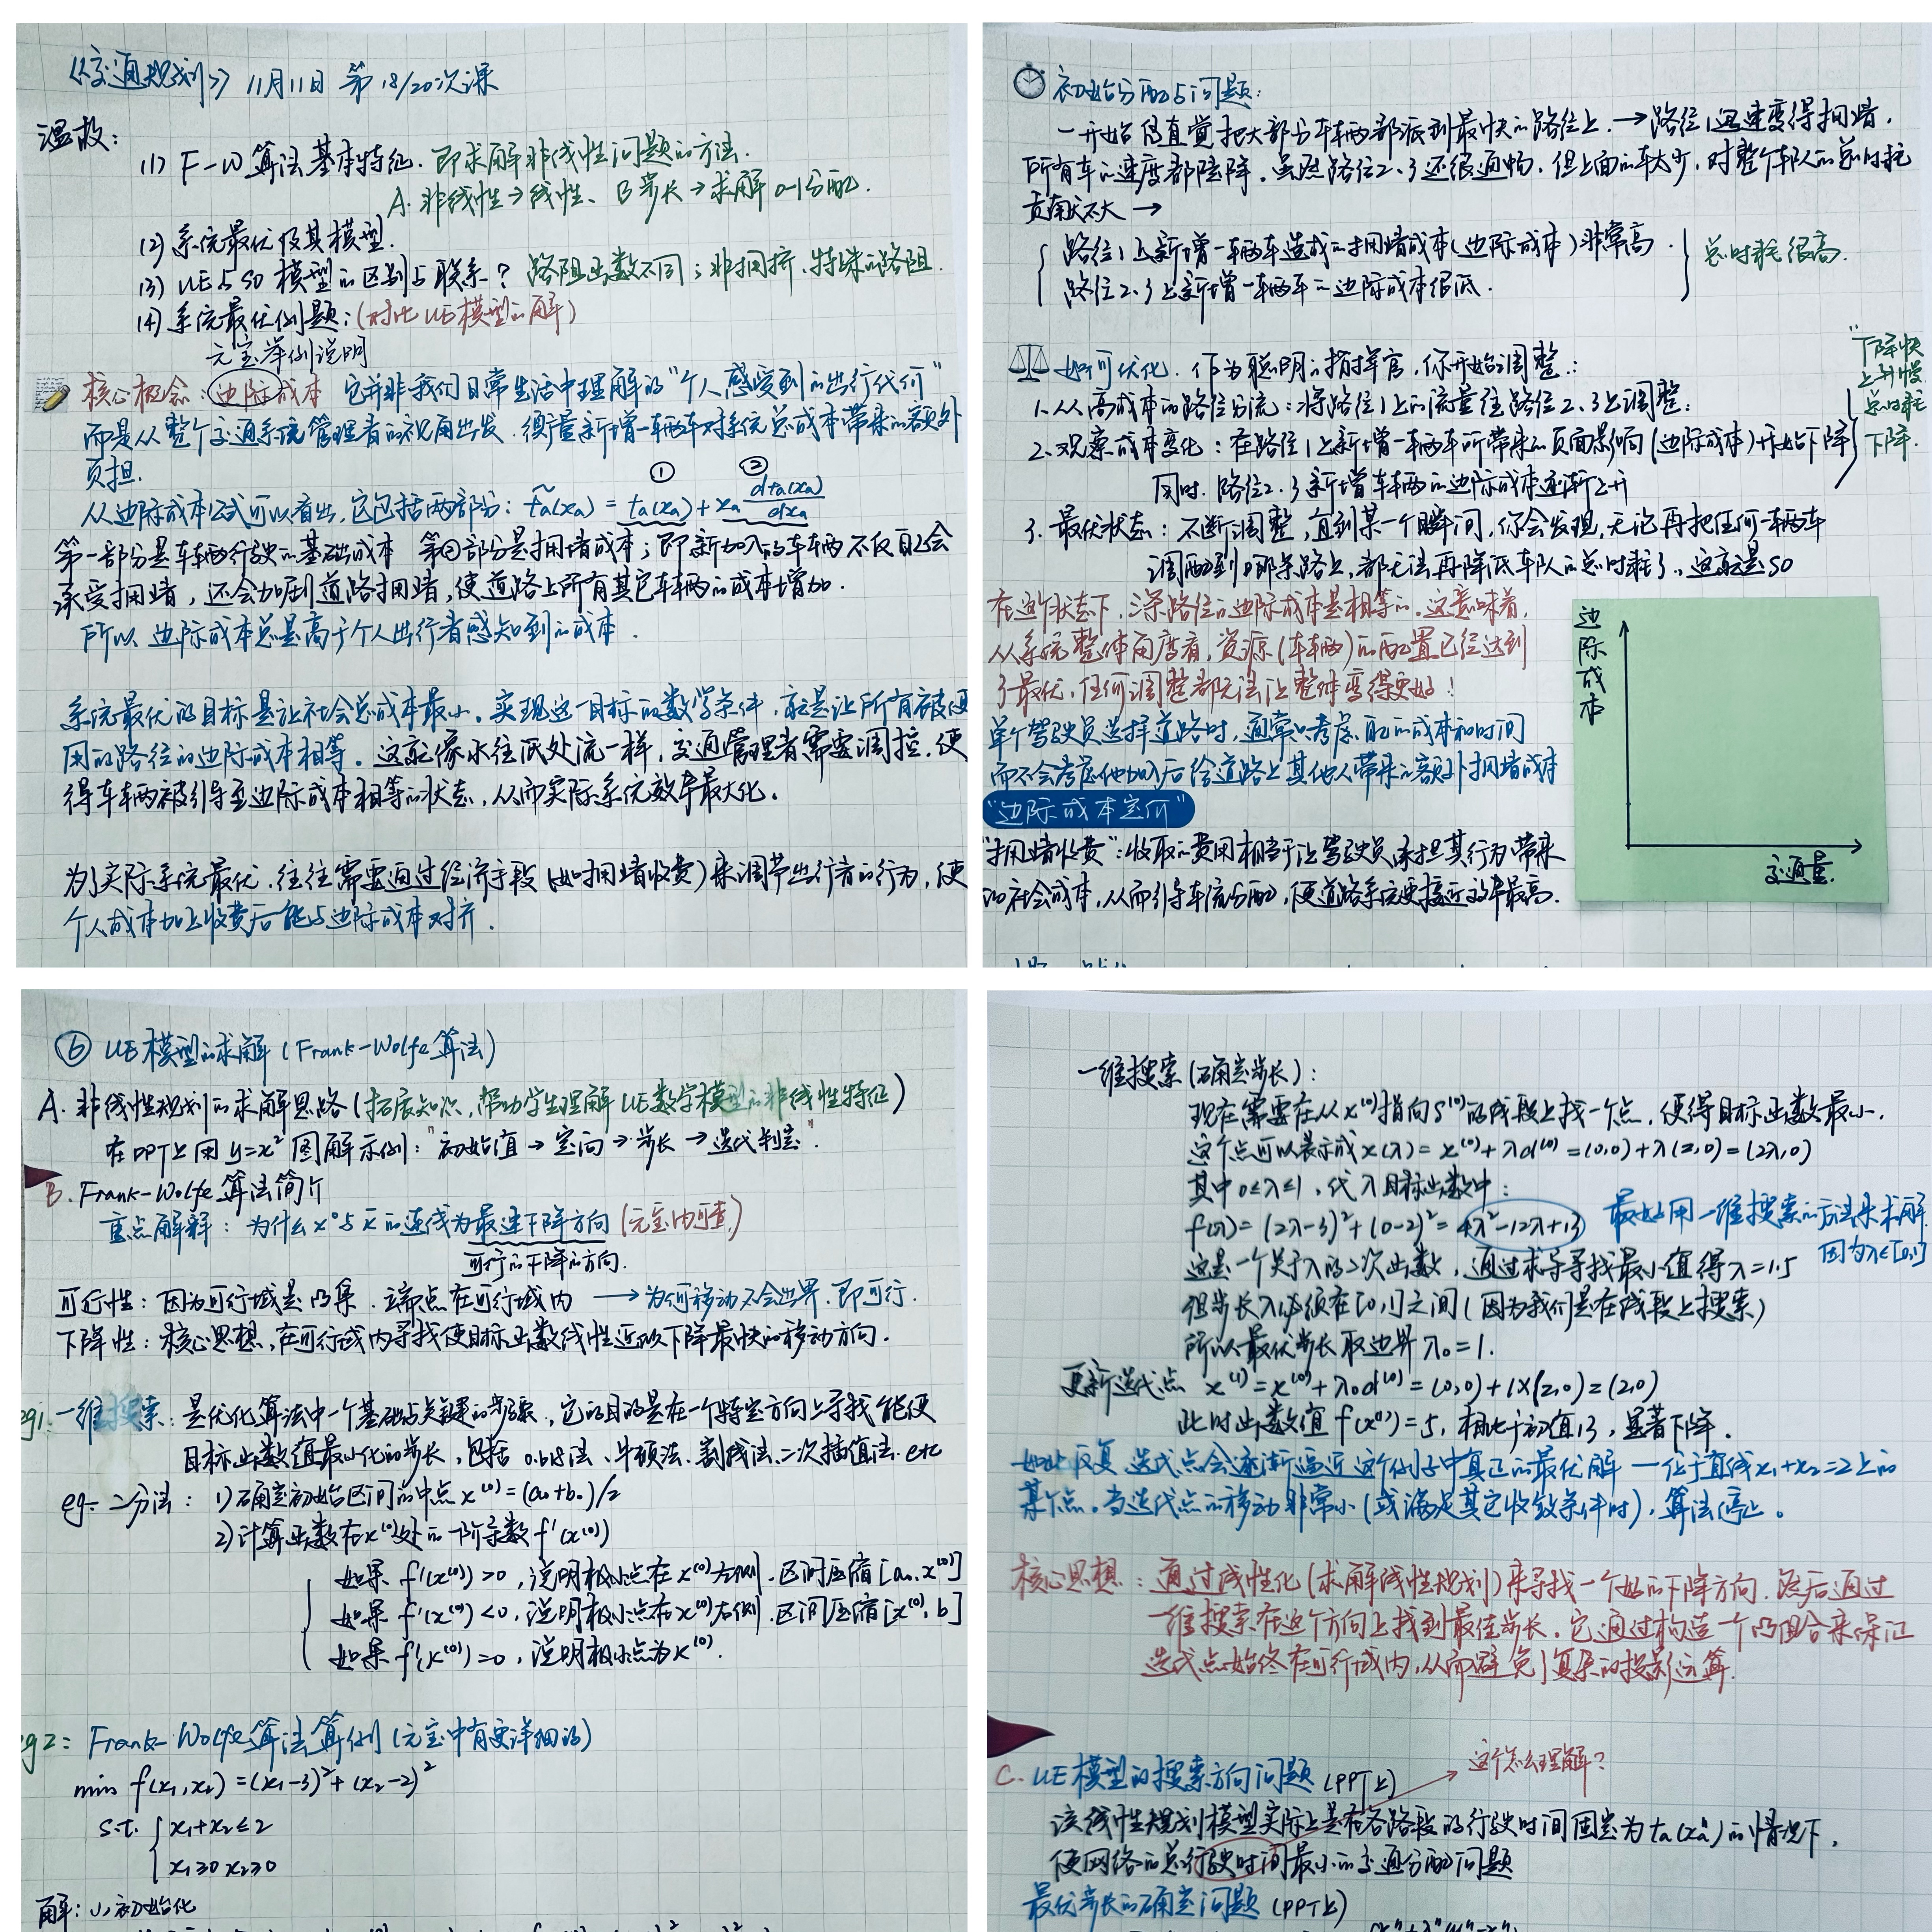 《交通规划》 11月11日 第18/20次课
温故:
(1) F-W算法基本特征. 即求解非线性问题的方法.
A. 非线性→线性、 B 步长→求解 0-1分配.
(2) 系统最优及其模型.
(3) UE与SO模型的区别与联系? 路阻函数不同; 非拥挤、特殊的路阻.
(4) 系统最优例题:(对比UE模型的解)
元宝举例说明
核心概念: 边际成本 它并非我们日常生活中理解的“个人感受到的出行代价”
而是从整个交通系统管理者的视角出发. 衡量新增一辆车对系统总成本带来的额外
负担.
从边际成本公式可以看出, 它包括两部分: t̃a(xa) = ta(xa) + xa dta(xa)/dxa
① ②
第一部分是车辆行驶的基础成本 第②部分是拥堵成本; 即新加入的车辆不仅自己会
承受拥堵, 还会加剧道路拥堵, 使道路上所有其它车辆的成本增加.
所以 边际成本总是高于个人出行者感知到的成本.
系统最优的目标是让社会总成本最小. 实现这一目标的数学条件, 就是让所有被使
用的路径的边际成本相等. 这就像水往低处流一样, 交通管理者需要调控, 使
得车辆被引导至边际成本相等的状态, 从而实际系统效率最大化.
为了实际系统最优, 往往需要通过经济手段 (如拥堵收费) 来调节出行者的行为, 使
个人成本加上收费后能与边际成本对齐.
初始分配与问题:
一开始 凭直觉把大部分车辆都派到最快的路径上. →路径1迅速变得拥堵.
所有车的速度都陡降. 虽然路径2、3还很通畅. 但上面的车太少, 对整个车队的总时耗
贡献不大 →
路径1上新增一辆车造成的拥堵成本(边际成本)非常高.
路径2、3上新增一辆车的边际成本很低.
总时耗很高.
如何优化. 作为聪明的指挥官, 你开始调整:
1. 从高成本的路径分流: 将路径1上的流量往路径2、3上调整;
2. 观察成本变化: 在路径1上新增一辆车所带来的页面影响(边际成本)开始下降
同时. 路径2、3新增车辆的边际成本逐渐上升
“下降快
上升慢
总时耗
下降.
3. 最优状态: 不断调整, 直到某一个瞬间, 你会发现, 无论再把任何一辆车
调配到哪条路上, 都无法再降低车队的总时耗了. 这就是SO
在这个状态下, 三条路径的边际成本是相等的. 这意味着,
从系统整体角度看, 资源(车辆)的配置已经达到
了最优, 任何调整都无法让整体变得更好!
单个驾驶员选择道路时, 通常只考虑自己的成本和时间
而不会考虑他加入后给道路上其他人带来的额外拥堵成本
“边际成本定价”
“拥堵收费”: 收取的费用相当于让驾驶员承担其行为带来
的社会成本, 从而引导车流分配, 使道路系统更接近效率最高.
边际成本
交通量.
⑥ UE模型的求解 (Frank-Wolfe算法)
A. 非线性规划的求解思路 (拓展知识, 帮助学生理解UE数学模型的非线性特征)
在PPT上用 y=x² 图解示例: “初始值→定向→步长→迭代判定”.
B. Frank-Wolfe算法简介
重点解释: 为什么x⁰与x̄的连线为最速下降方向 (元宝内可查)
可行的下降的方向.
可行性: 因为可行域是凸集. 端点在可行域内 → 为何移动不会出界. 即可行.
下降性: 核心思想, 在可行域内寻找使目标函数线性近似下降最快的移动方向.
eg1: 一维搜索: 是优化算法中一个基础与关键的步骤, 它的目的是在一个特定方向上寻找能使
目标函数值最小化的步长, 包括 0.618法、牛顿法、割线法、二次插值法. etc
eg: 二分法: 1) 确定初始区间的中点 x⁽⁰⁾=(a₀+b₀)/2
2) 计算函数在x⁽⁰⁾处的一阶导数 f'(x⁽⁰⁾)
如果 f'(x⁽⁰⁾)>0, 说明极小点在x⁽⁰⁾左侧. 区间压缩[a₀, x⁽⁰⁾]
如果 f'(x⁽⁰⁾)<0, 说明极小点在x⁽⁰⁾右侧. 区间压缩[x⁽⁰⁾, b]
如果 f'(x⁽⁰⁾)=0, 说明极小点为x⁽⁰⁾.
eg2: Frank-Wolfe算法算例 (元宝中有更详细的)
min f(x₁,x₂) = (x₁-3)²+(x₂-2)²
s.t. x₁+x₂≤2
x₁≥0 x₂≥0
解: (1) 初始化
一维搜索 (确定步长):
现在需要在从x⁽⁰⁾指向s⁽⁰⁾的线段上找一个点, 使得目标函数最小.
这个点可以表示成 x(λ) = x⁽⁰⁾+λd⁽⁰⁾ = (0,0)+λ(2,0) = (2λ,0)
其中 0≤λ≤1, 代入目标函数中:
f(λ) = (2λ-3)²+(0-2)² = 4λ²-12λ+13 最好用一维搜索的方法来求解.
因为λ∈[0,1]
这是一个关于λ的二次函数, 通过求导寻找最小值得λ=1.5
但步长λ必须在[0,1]之间 (因为我们是在线段上搜索)
所以最优步长取边界 λ₀=1.
更新迭代点 x⁽¹⁾=x⁽⁰⁾+λ₀d⁽⁰⁾=(0,0)+1×(2,0)=(2,0)
此时函数值 f(x⁽¹⁾)=5, 相比于初值13, 显著下降.
如此反复 迭代点会逐渐逼近这个例子中真正的最优解 — 位于直线x₁+x₂=2上的
某个点. 当迭代点的移动非常小(或满足其它收敛条件时), 算法停止.
核心思想: 通过线性化 (求解线性规划) 来寻找一个好的下降方向. 然后通过
一维搜索在这个方向上找到最佳步长. 它通过构造一个凸组合来保证
迭代点始终在可行域内, 从而避免了复杂的投影运算.
C. UE模型的搜索方向问题 (PPT上) 这个怎么理解?
该线性规划模型实际上是在各路段的行驶时间固定为ta(xaⁿ)的情况下,
使网络的总行驶时间最小的交通分配问题
最优步长的确定问题 (PPT上)